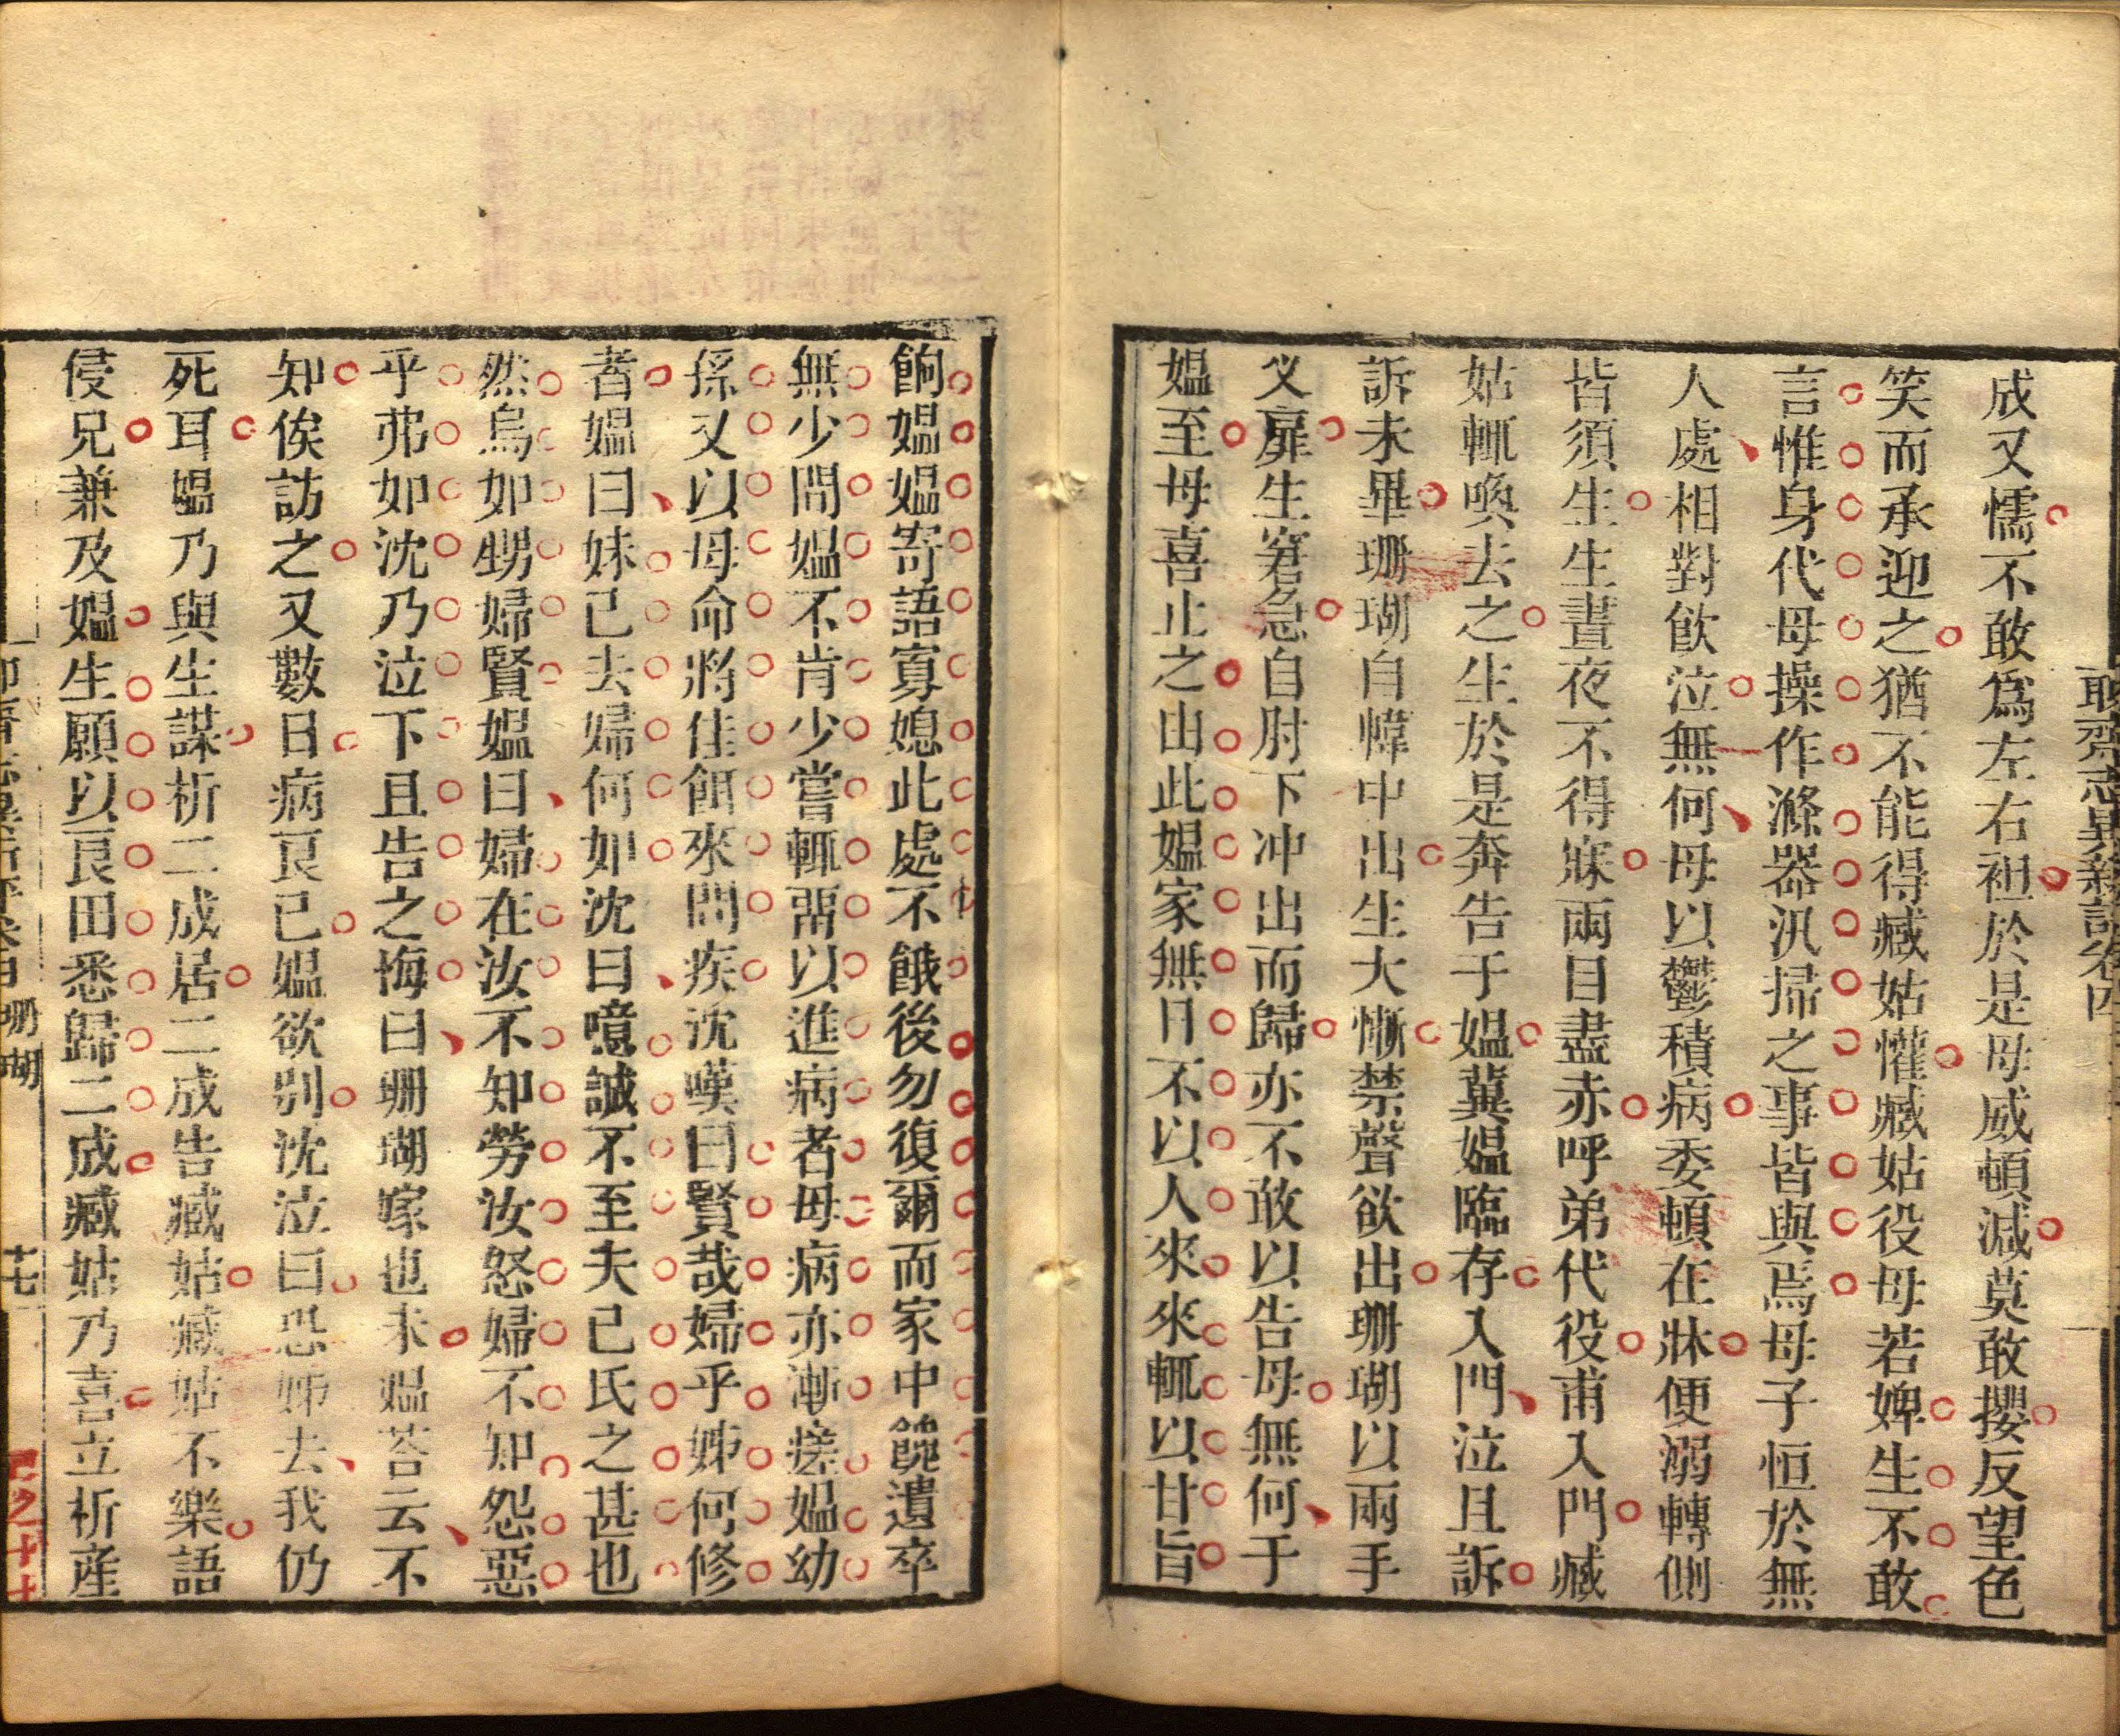 聊齋志異新評卷四
成又懦不敢爲左右袒於是母威頓減莫敢攖反望色
笑而承迎之猶不能得臧姑懽臧姑役母若婢生不敢
言惟身代母操作滌器汎掃之事皆與焉母子恒於無
人處相對飮泣無何母以鬱積病委頓在牀便溺轉側
皆須生生晝夜不得寐兩目盡赤呼弟代役甫入門臧
姑輒喚去之生於是奔告于媼冀媼臨存入門泣且訴
訴未畢珊瑚自幃中出生大慚禁聲欲出珊瑚以兩手
义扉生窘急自肘下冲出而歸亦不敢以告母無何于
媼至母喜止之由此媼家無日不以人來來輒以甘旨
餉媼媼寄語寡媳此處不餓後勿復爾而家中餽遺卒
無少間媼不肯少嘗輒畱以進病者母病亦漸瘥媼幼
孫又以母命將佳餌來問疾沈嘆曰賢哉婦乎姊何修
者媼曰妹已去婦何如沈曰噫誠不至夫己氏之甚也
然烏如甥婦賢媼曰婦在汝不知勞汝怒婦不知怨惡
乎弗如沈乃泣下且告之悔曰珊瑚嫁也未媼荅云不
知俟訪之又數日病良已媼欲別沈泣曰恐姊去我仍
死耳媼乃與生謀析二成居二成告臧姑臧姑不樂語
侵兄兼及媼生願以良田悉歸二成臧姑乃喜立析産
珊瑚
十七